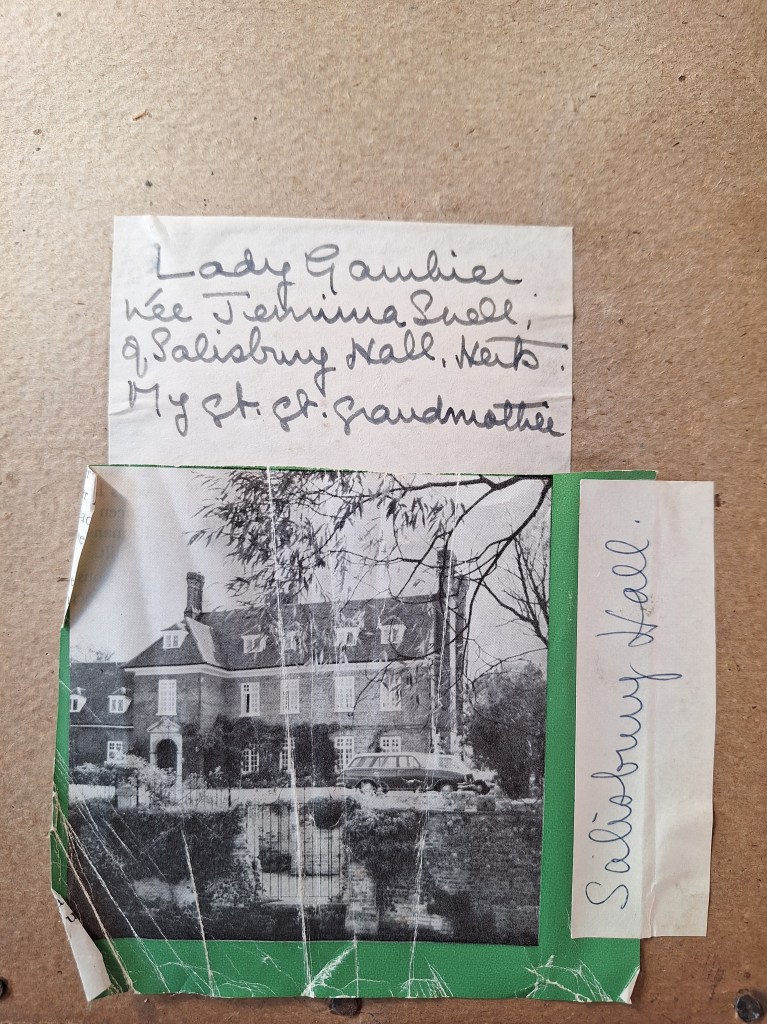 Lady Gambier
née Jemima Snell,
of Salisbury Hall, Herts.
My gt. gt. grandmother
Salisbury Hall.